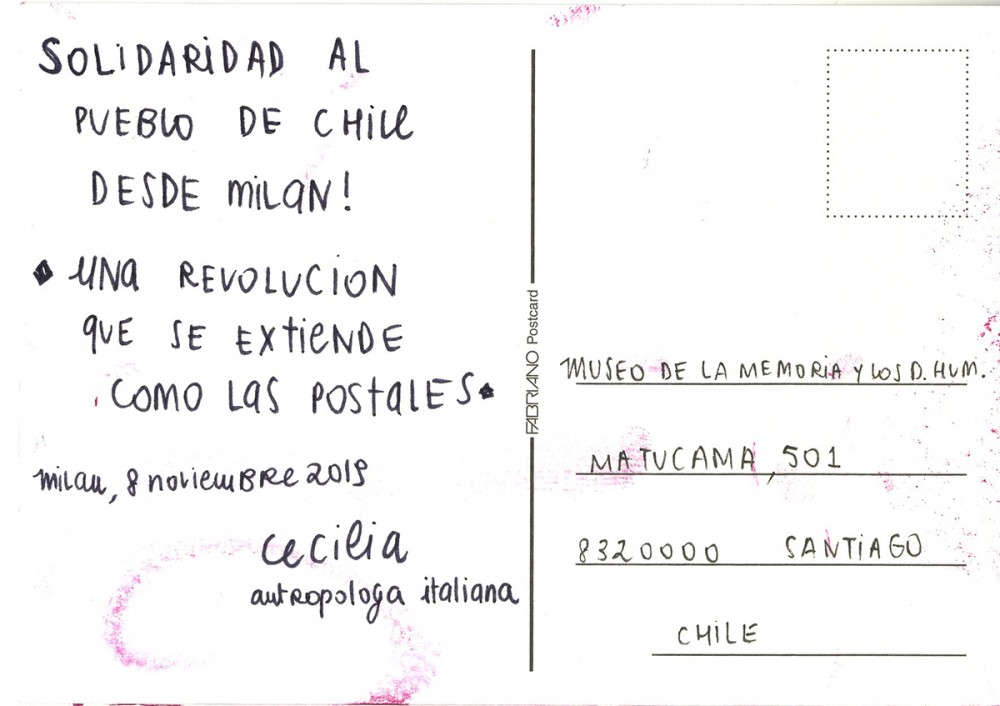 SOLIDARIDAD AL
PUEBLO DE CHILE
DESDE MILAN!
UNA REVOLUCION
QUE SE EXTIENDE
COMO LAS POSTALES
Milan, 8 noviembre 2019
cecilia
antropologa italiana
FABRIANO Postcard
MUSEO DE LA MEMORIA Y LOS D. HUM.
MATUCAMA, 501
8320000 SANTIAGO
CHILE